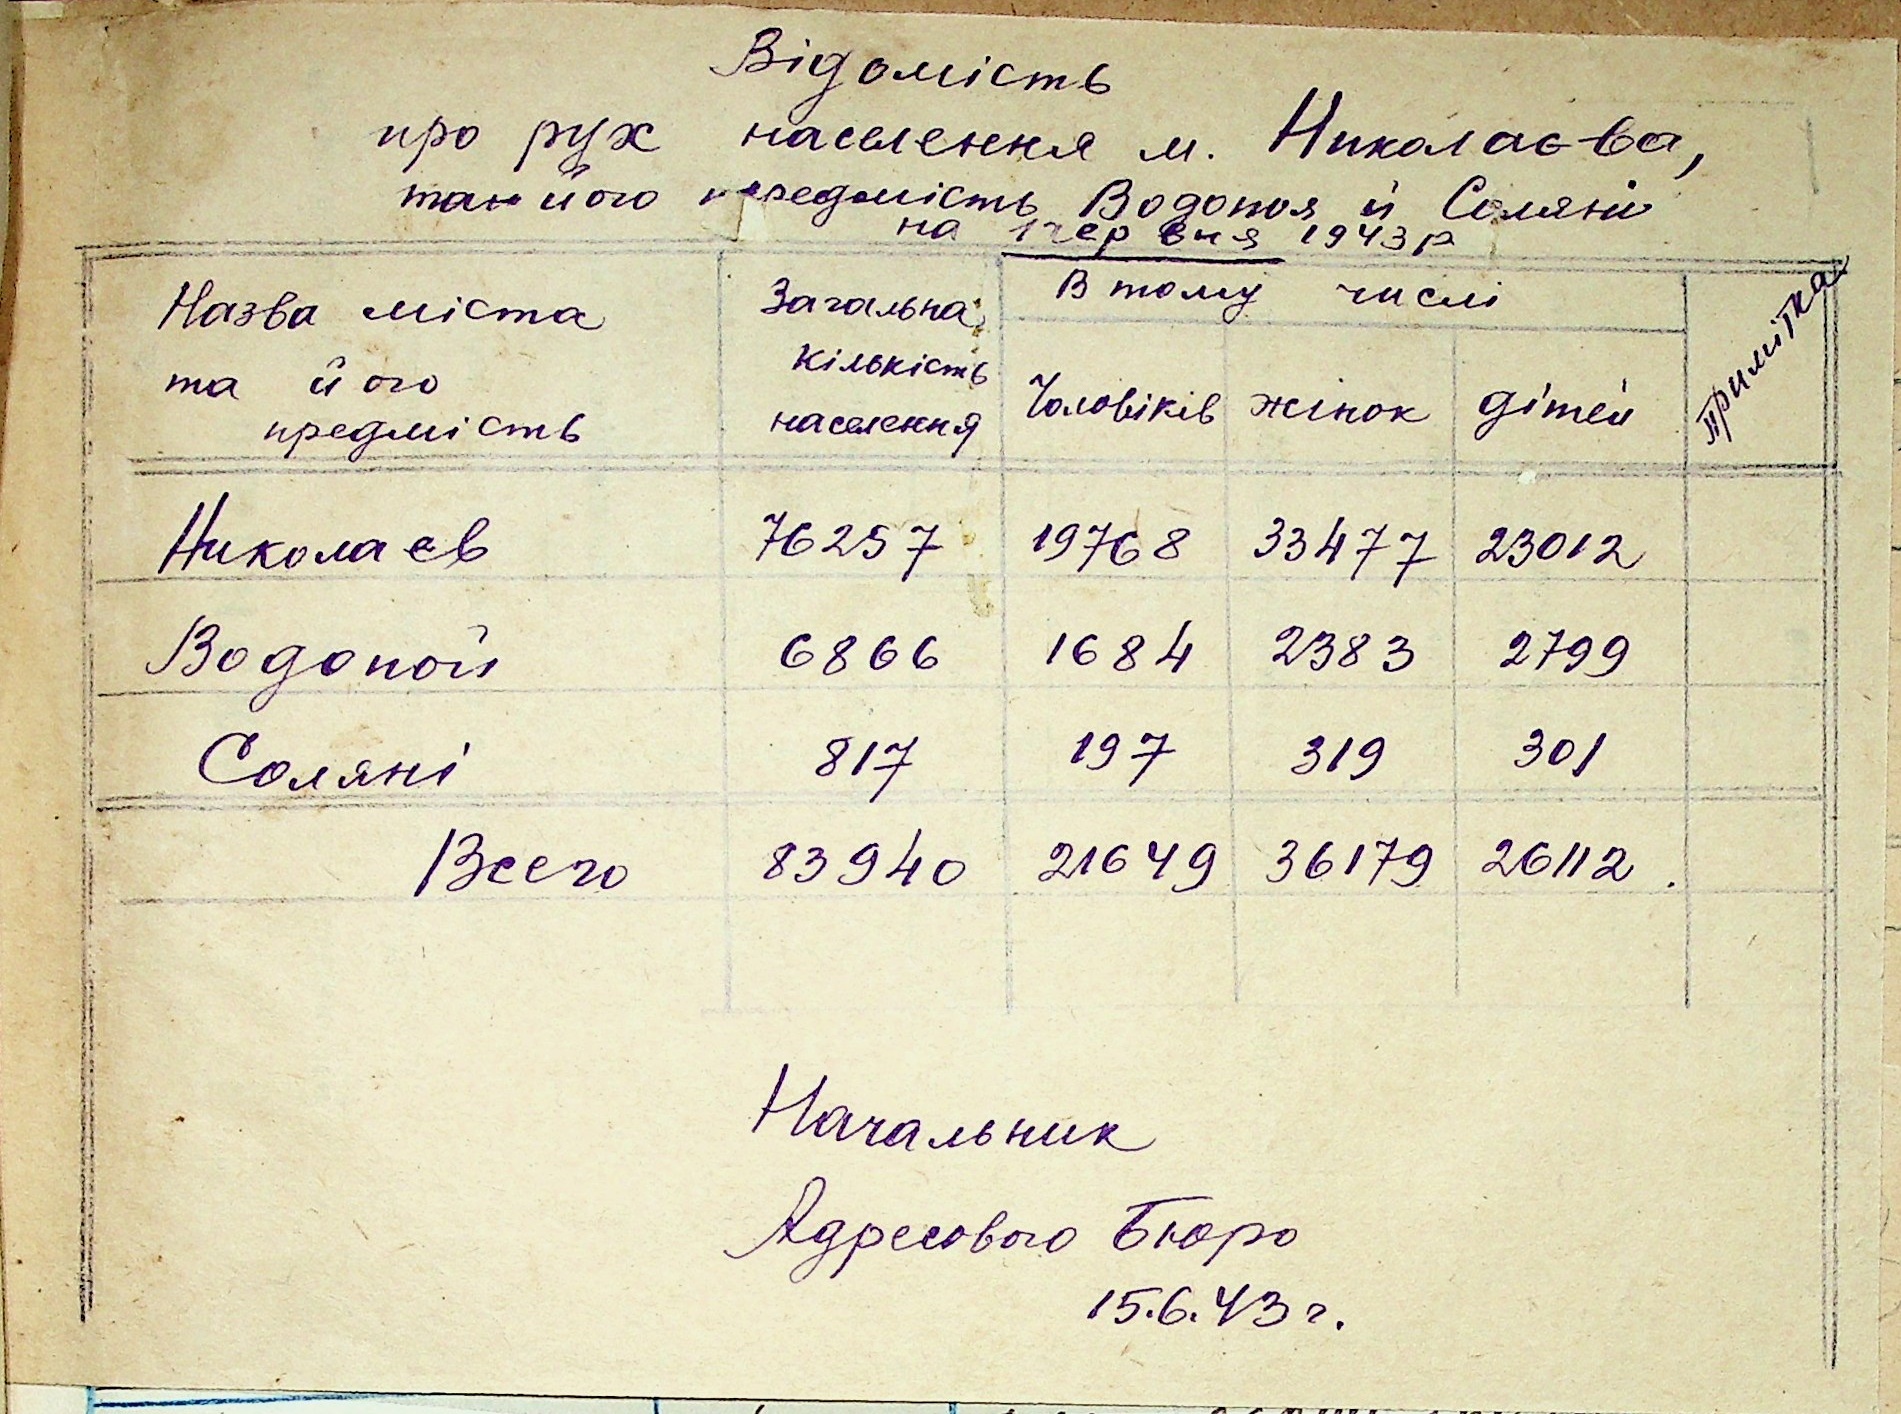 Відомість
про рух населення м. Николаєва,
та його передмість Водопоя й Соляні
на 1 червня 1943 р
Назва міста
та його
предмість
Загальна
кількість
населення
В тому числі
Чоловіків жінок дітей
Примітка
Николаєв 76257 19768 33477 23012
Водопой 6866 1684 2383 2799
Соляні 817 197 319 301
Всего 83940 21649 36179 26112.
Начальник
Адресового Бюро
15.6.43 г.